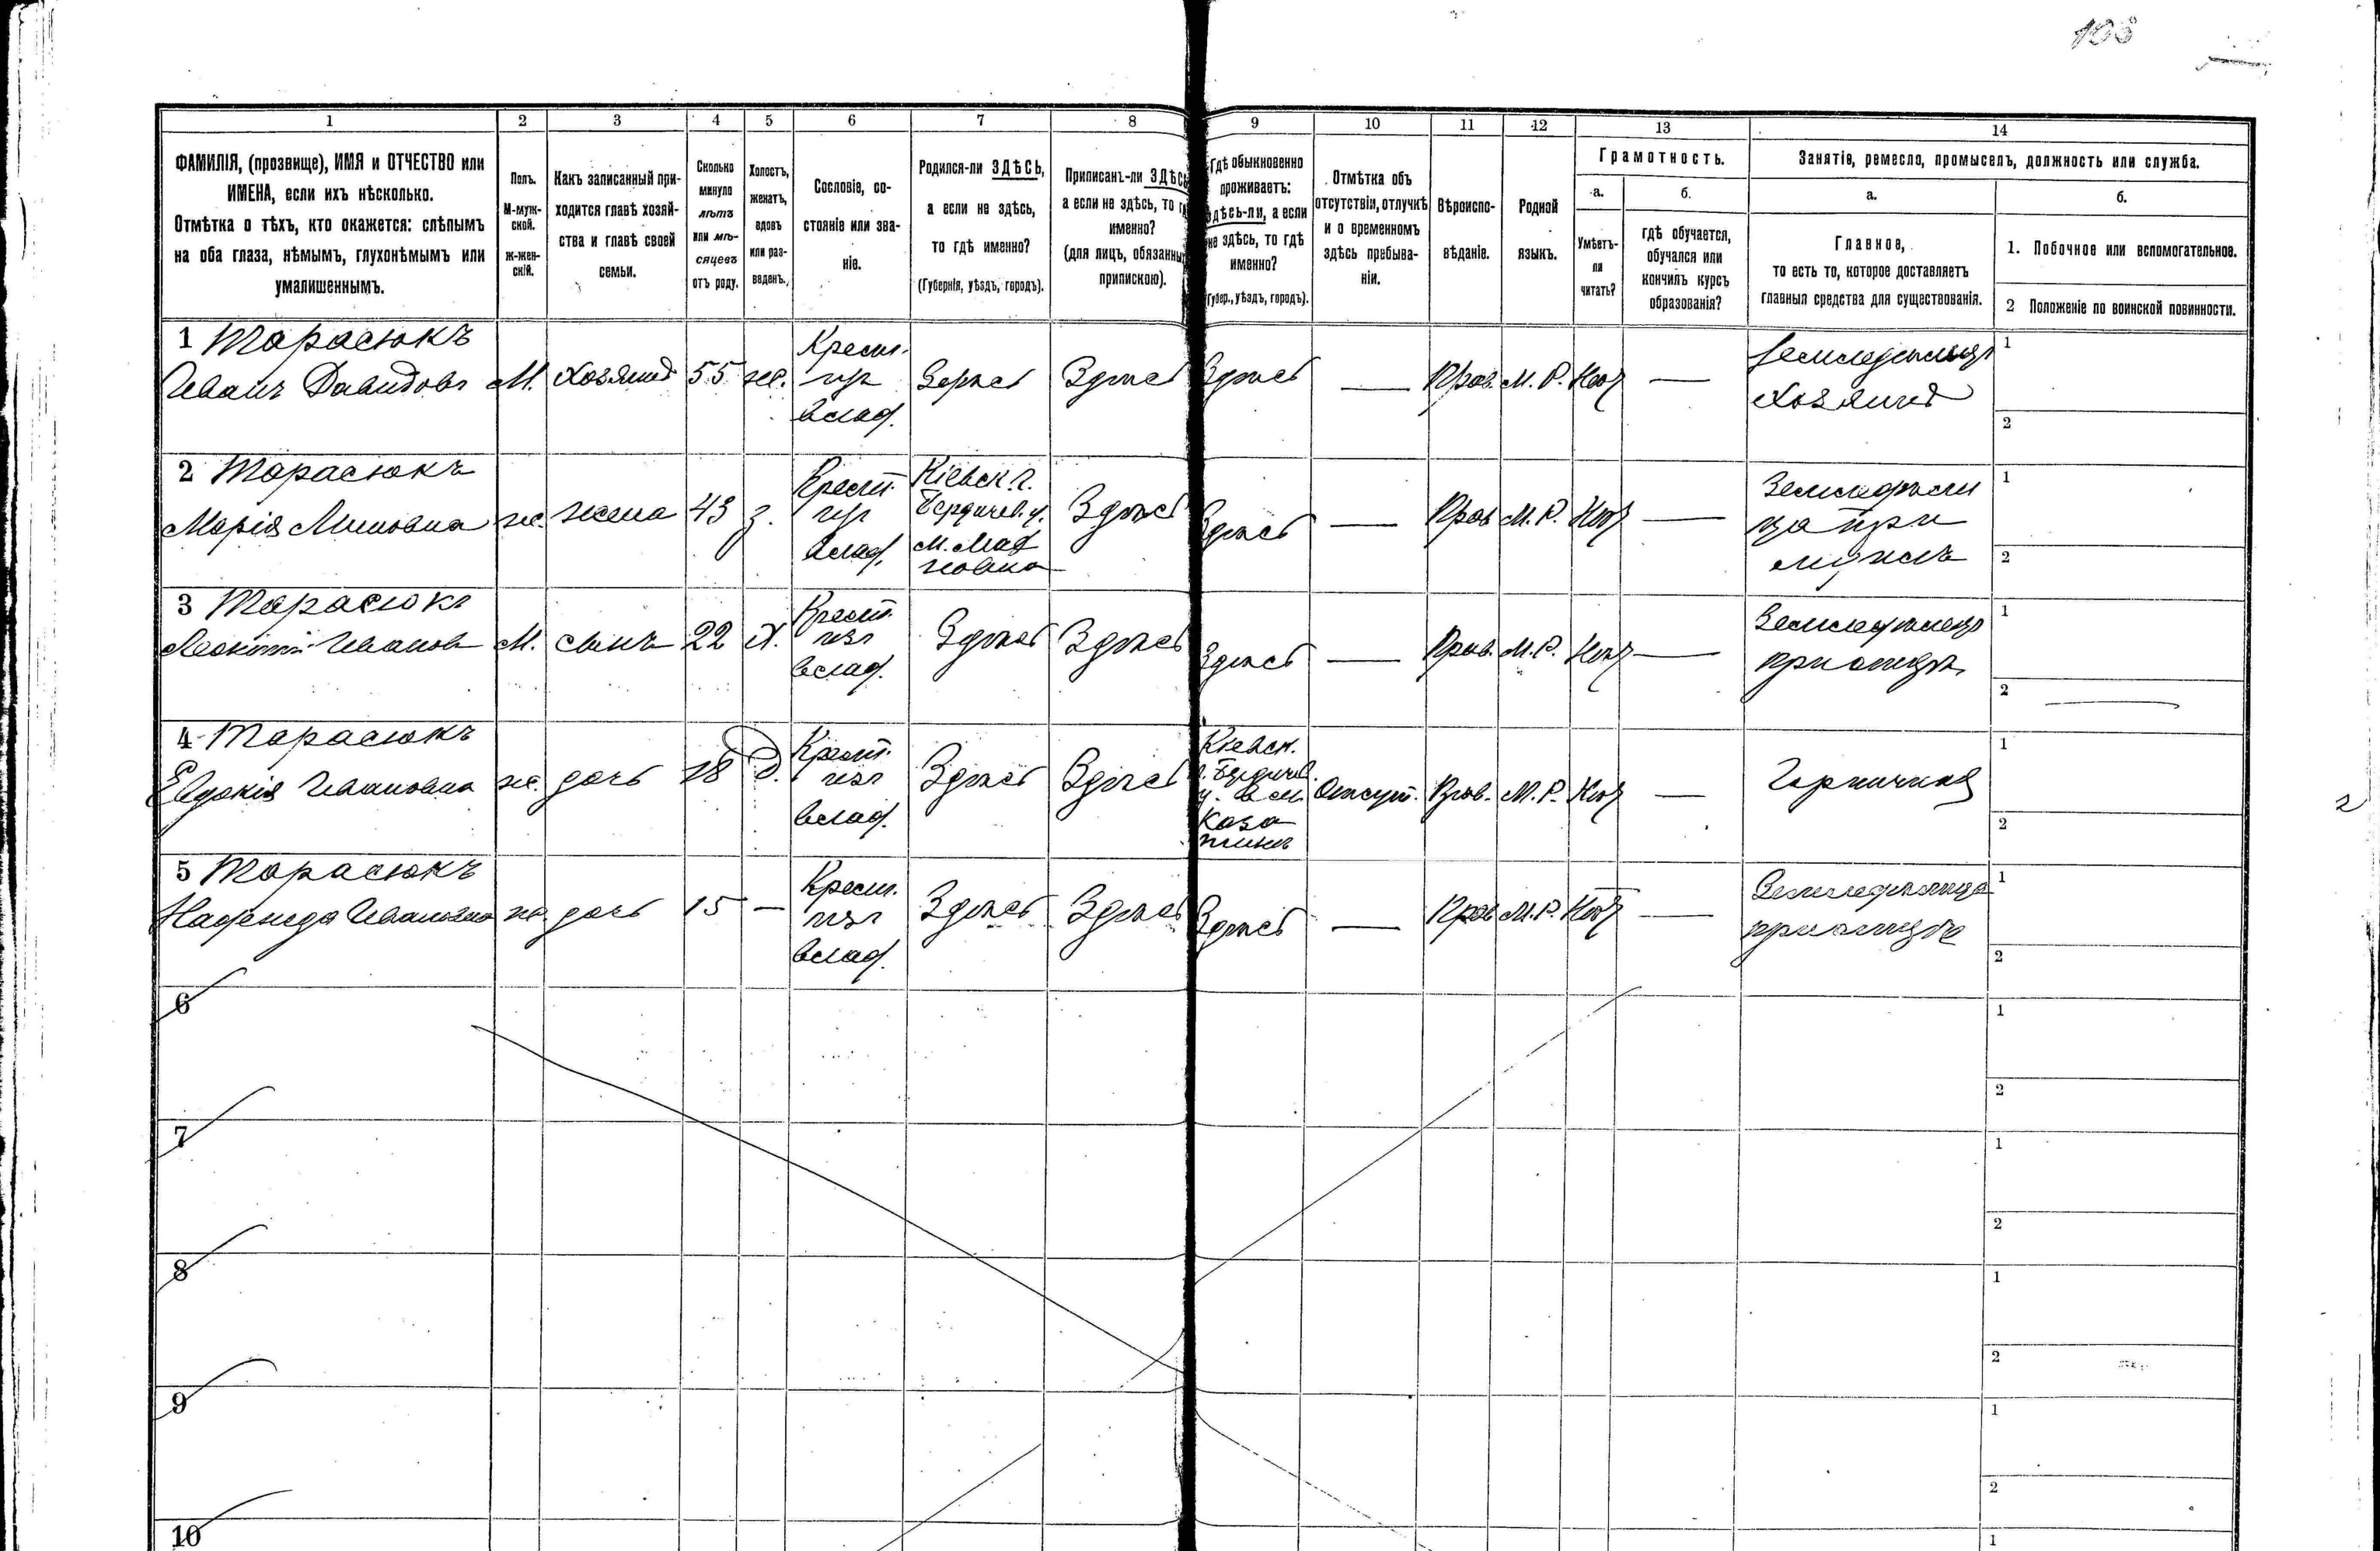 103
1
2
3
4
5
6
7
8
9
10
11
12
13
14
ФАМИЛІЯ, (прозвище), ИМЯ и ОТЧЕСТВО или
ИМЕНА, если ихъ нѣсколько.
Отмѣтка о тѣхъ, кто окажется: слѣпымъ
на оба глаза, нѣмымъ, глухонѣмымъ или
умалишеннымъ.
Полъ.
М-муж-
ской.
ж-жен-
скій.
Какъ записанный при-
ходится главѣ хозяй-
ства и главѣ своей
семьи.
Сколько
минуло
лѣтъ
или мѣ-
сяцевъ
отъ роду.
Холостъ,
женатъ,
вдовъ
или раз-
веденъ.
Сословіе, со-
стояніе или зва-
ніе.
Родился-ли ЗДѢСЬ,
а если не здѣсь,
то гдѣ именно?
(Губернія, уѣздъ, городъ).
Приписанъ-ли ЗДѢСЬ
а если не здѣсь, то
именно?
(для лицъ, обязанны
припискою).
Гдѣ обыкновенно
проживаетъ:
здѣсь-ли, а если
не здѣсь, то гдѣ
именно?
(Губер., уѣздъ, городъ).
Отмѣтка объ
отсутствіи, отлучкѣ
и о временномъ
здѣсь пребыва-
ніи.
Вѣроиспо-
вѣданіе.
Родной
языкъ.
Грамотность.
а.
Умѣетъ-
ли
читать?
б.
гдѣ обучается,
обучался или
кончилъ курсъ
образованія?
Занятіе, ремесло, промыселъ, должность или служба.
а.
Главное,
то есть то, которое доставляетъ
главныя средства для существованія.
б.
1. Побочное или вспомогательное.
2 Положеніе по воинской повинности.
1 Тарасюкъ
Иванъ Давидовъ
М.
Хозяинъ
55
ж.
Крест.
из
влад.
Здѣсь
Здѣсь
Здѣсь
—
Прав.
М. Р.
Нѣт
—
Земледѣлецъ
Хозяинъ
1
2
2 Тарасюкъ
Марія
ж.
жена
43
з.
Крест.
из
влад.
Кіевск. г.
Бердичев. у.
Здѣсь
Здѣсь
—
Прав
М. Р.
Нѣт
—
Земледѣли
ца при
мужѣ
1
2
3 Тарасюкъ
Иванов
М.
сынъ
22
Х.
Крест.
изъ
влад.
Здѣсь
Здѣсь
Здѣсь
—
Прав.
М. Р.
Нѣт
—
Земледѣлецъ
при отцѣ
1
2
4 Тарасюкъ
Евдокія Ивановна
ж.
дочь
18
д.
Крест.
изъ
влад.
Здѣсь
Здѣсь
Кіевск.
г. Бердичев.
у. в м.
Каза
тинъ
Отсут.
Прав.
М. Р.
Нѣт
—
Горничная
1
2
5 Тарасюкъ
Надежда Ивановна
ж.
дочь
15
—
Крест.
изъ
влад.
Здѣсь
Здѣсь
Здѣсь
—
Прав
М. Р.
Нѣт
—
Земледѣлица
при отцѣ
1
2
6
1
2
7
1
2
8
1
2
9
1
2
10
1